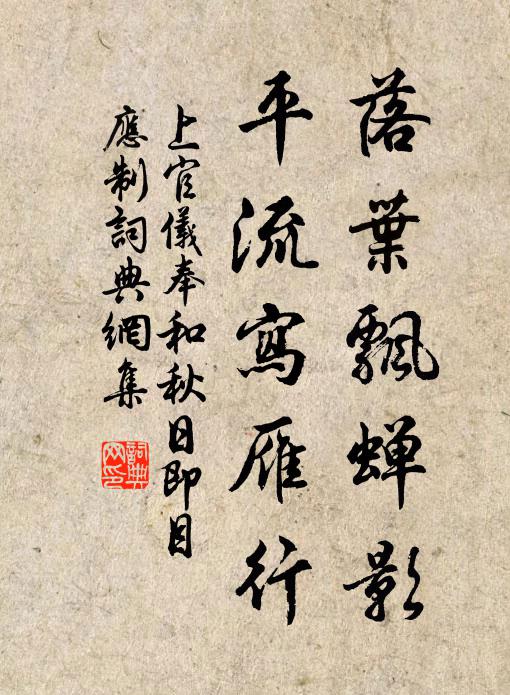 落葉飄蝉影
平流寫雁行
上官儀奉和秋日即目
應制詞典網集
詞典
网印